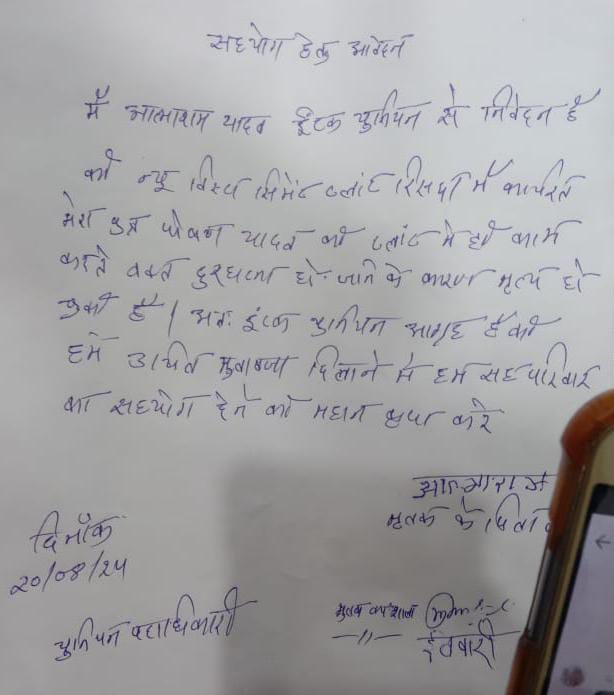 सहयोग हेतु आवेदन
मैं आत्माराम यादव इंटक युनियन से निवेदन है
की न्यू विस्टा सिमेंट प्लांट रिसदा में कार्यरत
मेरा पुत्र यादव की प्लांट में ही काम
करते वक्त दुरघटना हो जाने के कारण मृत्य हो
चुकी है। अतः इंटक युनियन आग्रह है की
हमें उचित मुवाबजा दिलाने में हमें सहपरिवार
का सहयोग देने की महान कृपा करे
आत्माराम
मृतक के पिता
दिनाँक
20/08/24
मृतक का
युनियन पदाधिकारी
—11— ईतवारी